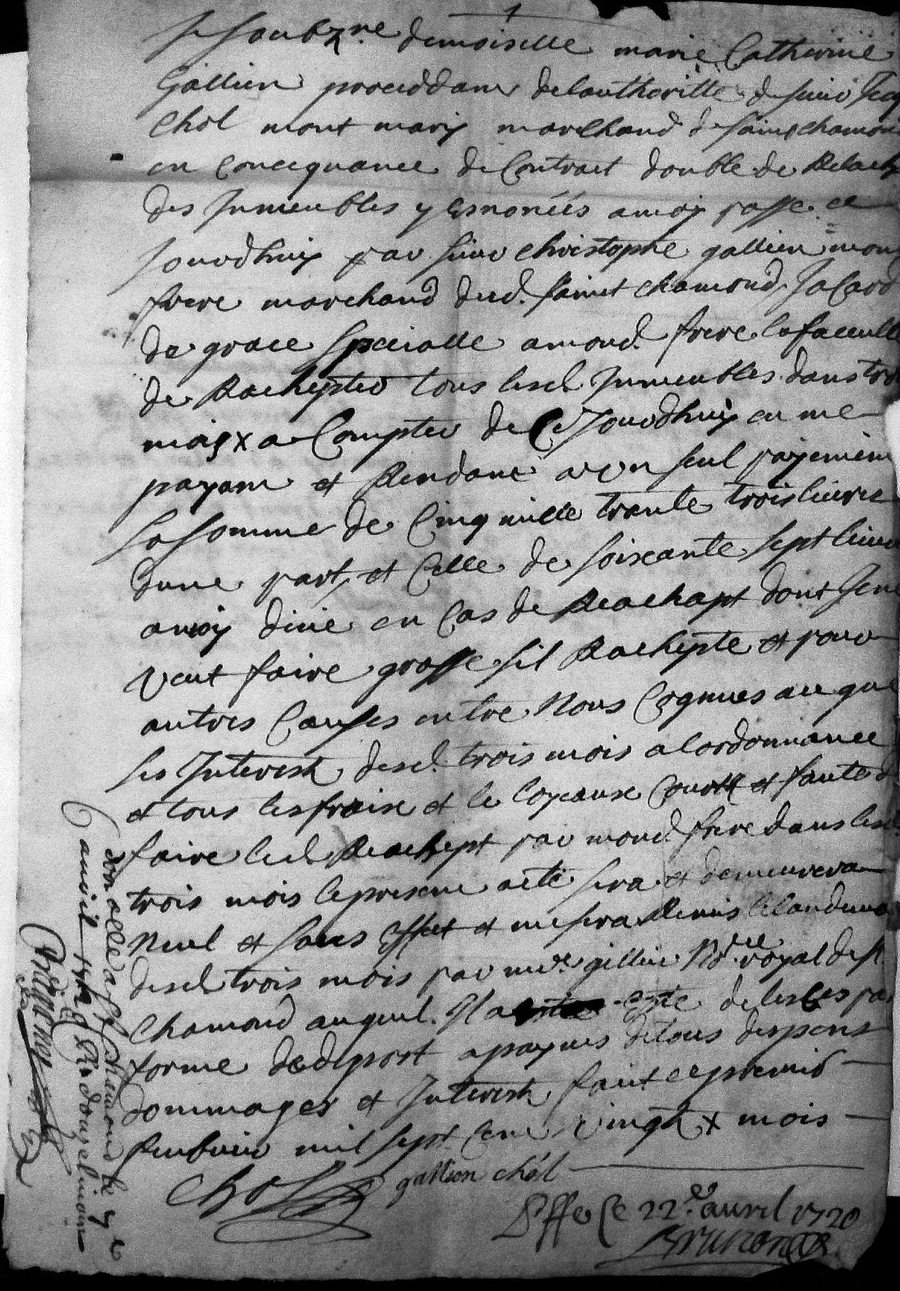 Je soubzne demoiselle marie Catherine
Gallien proceddant de lauthoritté de sieur
Chol mont mary marchand de sainct chamond
en concequance de Contract double de
des Inmeubles y esnonéés a moy passé ce
Jourdhuy par sieur christophe gallien mon
frere marchand dud. sainct chamond Jacord
de grace specialle a mond. frere la faculté
de Rachepter tous lesd Inmeubles dans trois
mois x a Compter de Ce Jourdhuy en me
payant et Rendant a un seul payement
la somme de Cinq mille trante trois livres
dune part, et Celle de soixante sept livres
a moy en cas de Reachapt dont
veut faire grasse sil Rachepte et pour
autres Causes entre Nous Cognues avec que
les Interest desd. trois mois a lordonnance
et tous les fraix et le loyeaux Coutt et faute de
faire led Reachept par mond frere dans lesd.
trois mois le present acte sera et demeurera
Neul et sans effect et me sera Remis le landemain
desd trois mois par me gillier Nore royal de st
Chamond auquel. Il a esté par
forme dedepost a paynes de tous despens
dommages et Interest fait ce premier
feubvrier mil sept cent vingt x mois
Chol gallien chol
Le 22e avril 1720